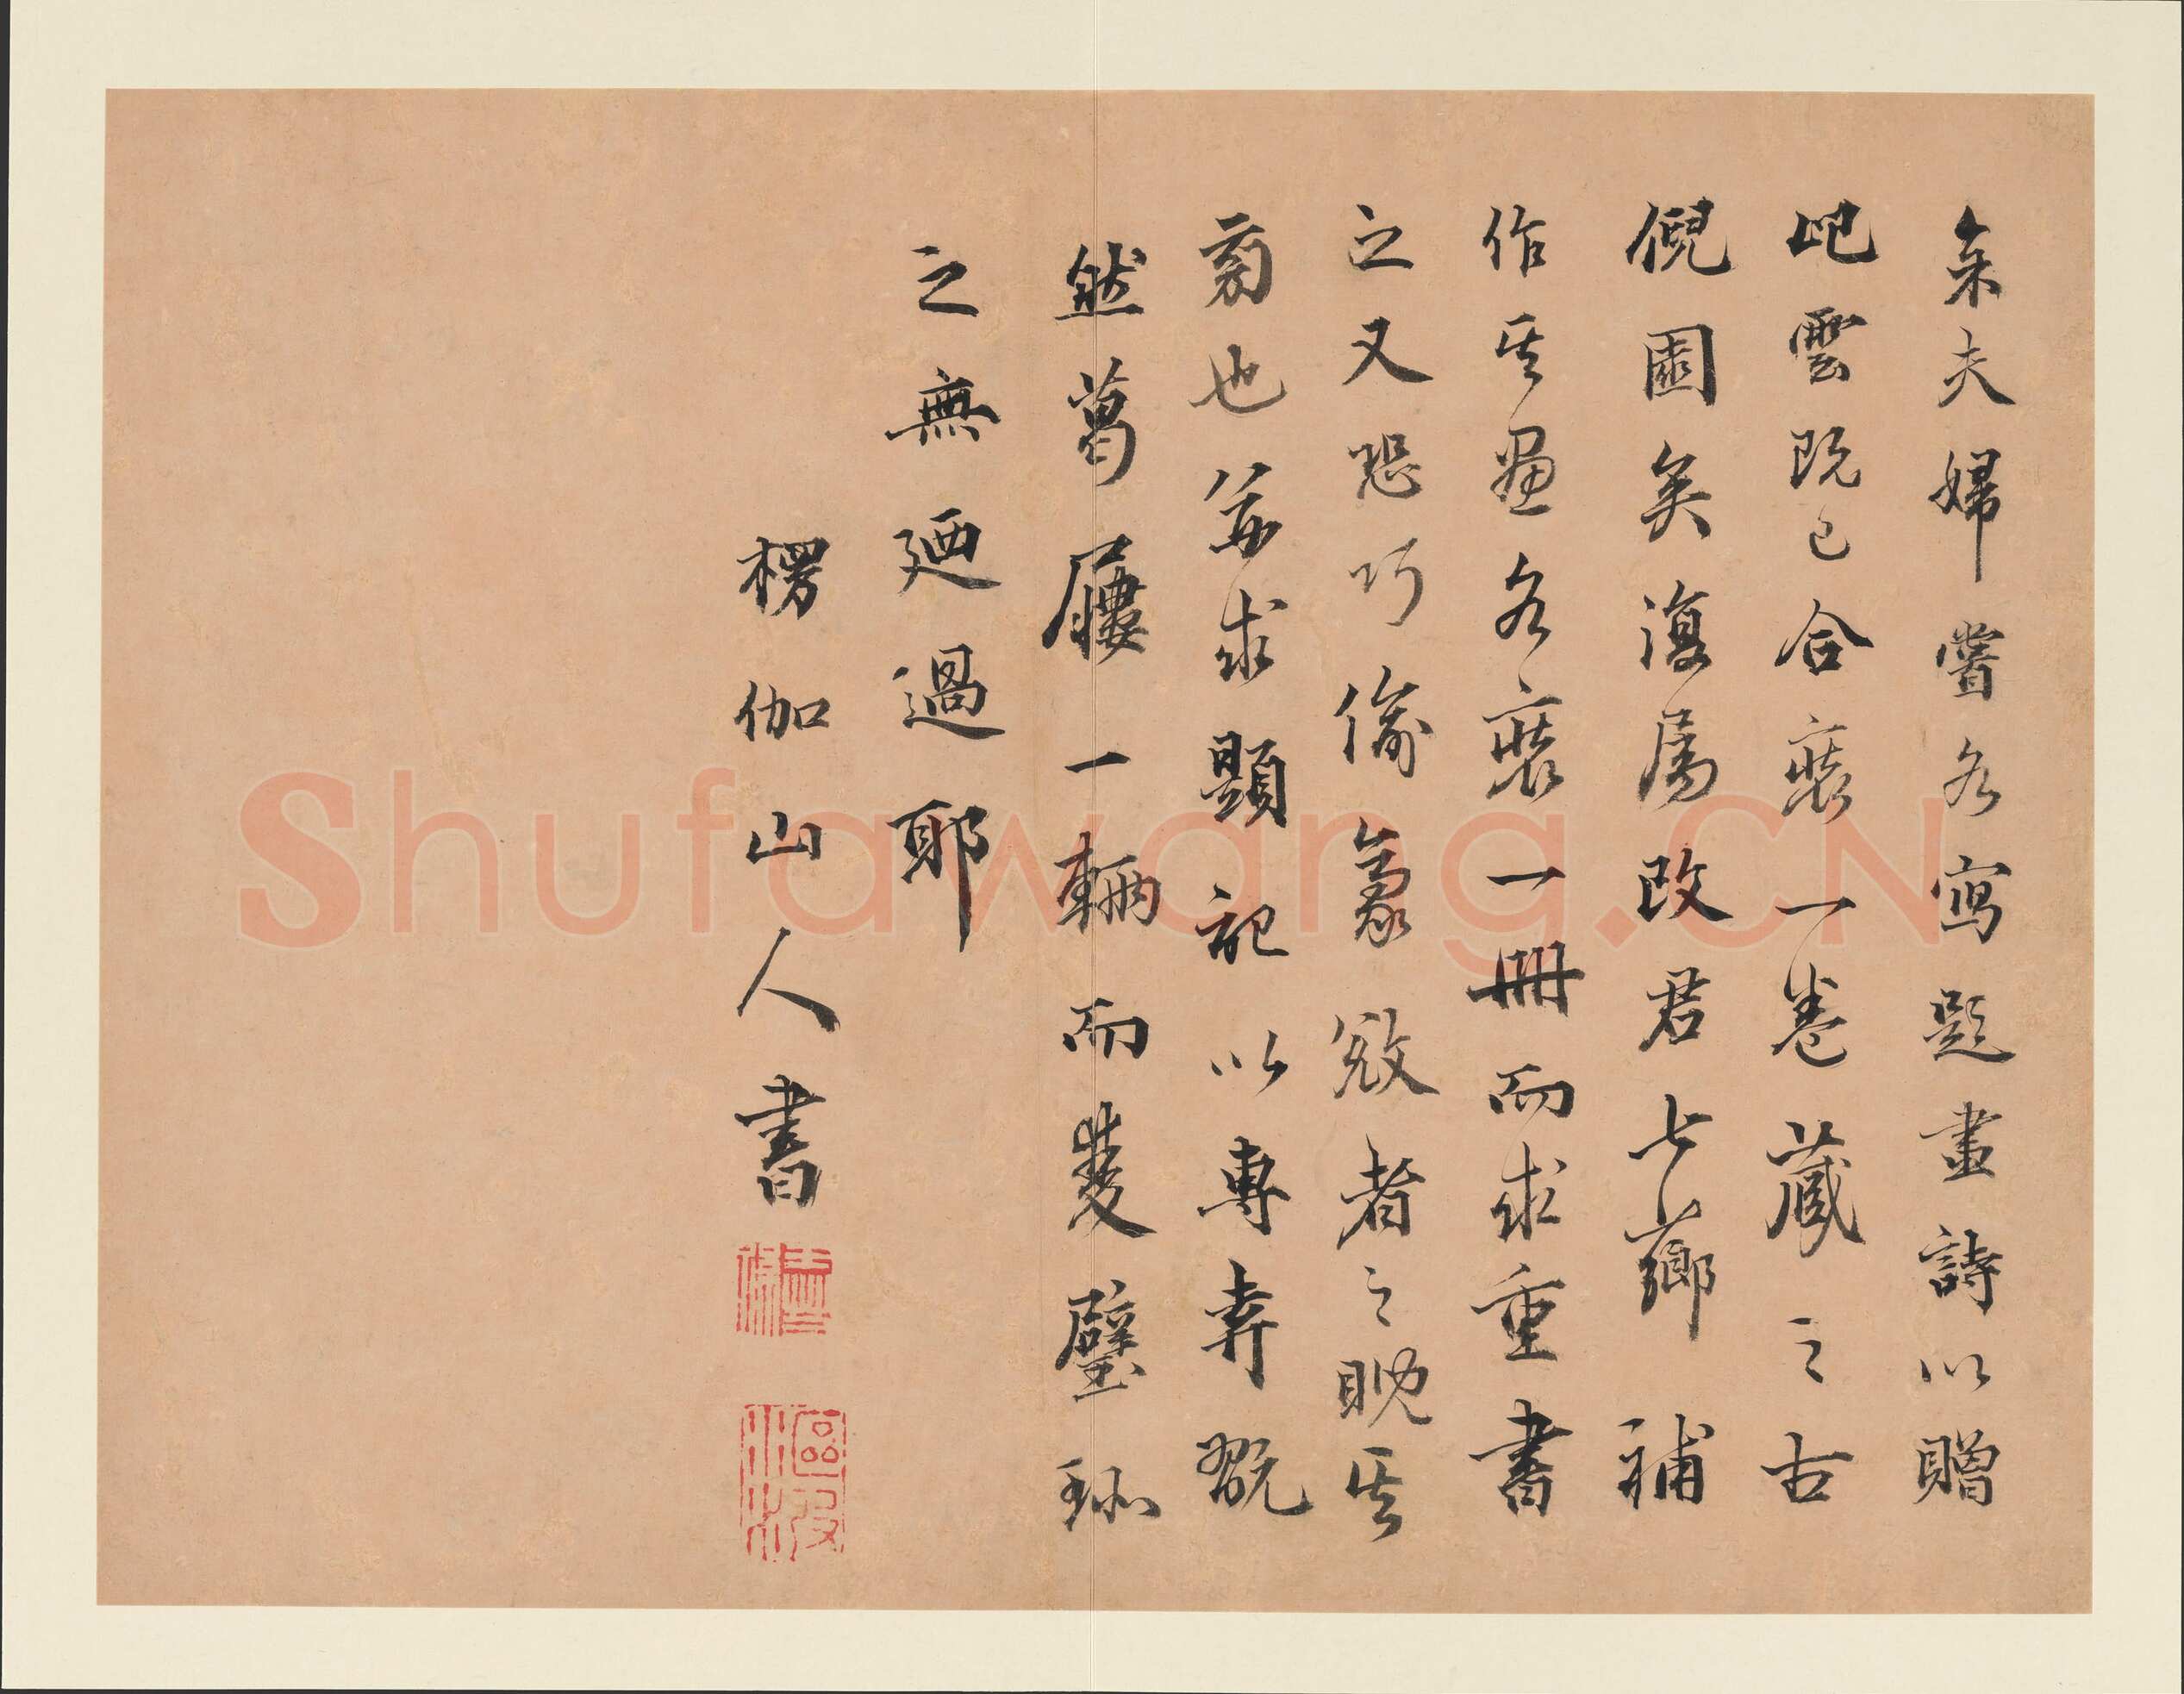 余夫婦嘗各寫題畫詩以贈
屺雲既已合裝一卷藏之古
倪園矣復屬改君七薌補
作其畫各裝一冊而求重書
之又恐巧偷豪敚者之睨其
旁也並求顯記以專弆翫
然葛屨一輛而雙璧珎
之無迺過耶
楞伽山人書
Shufawang.CN